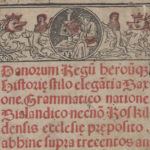 Danorum Regũ heroũq̃
Historię stilo elegãti a Saxone
Grammatico natione
Sialandico necnõ Roskildensis
ecclesię pręposito
abhinc supra trecentos an